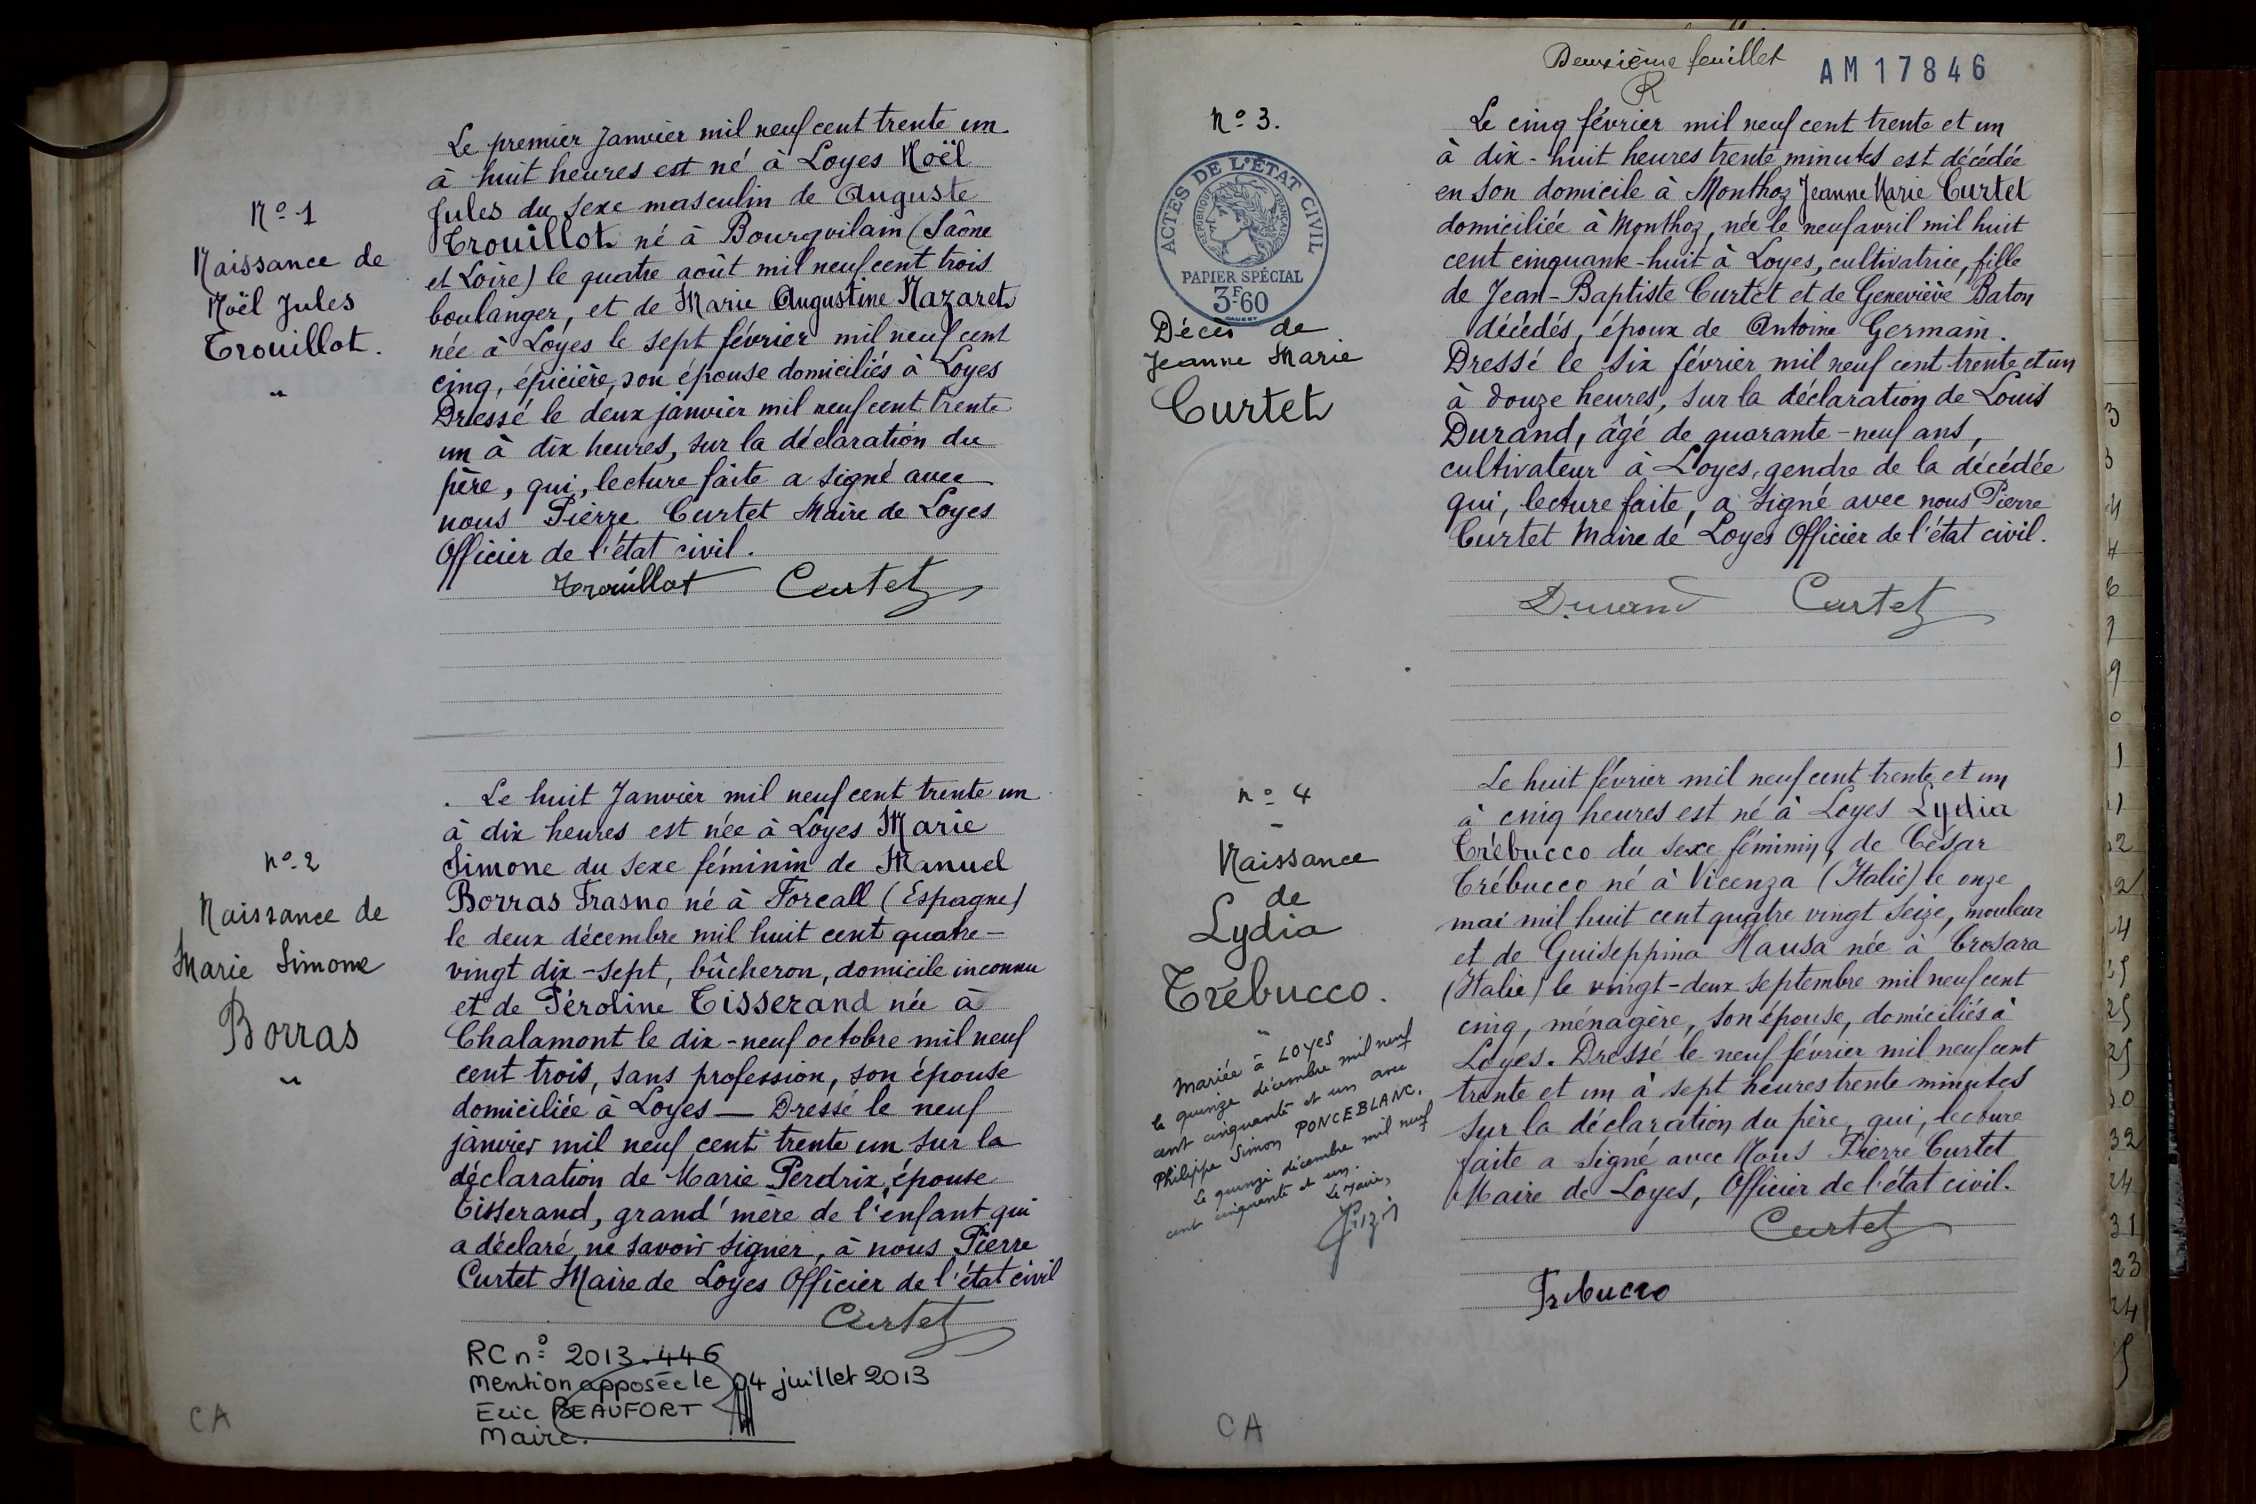 Le premier Janvier mil neuf cent trente un
à huit heures est né à Loyes Noël
Jules du sexe masculin de Auguste
Trouillot né à Bourgvilain (Saône
et Loire) le quatre août mil neuf cent trois
boulanger, et de Marie Augustine Nazaret
née à Loyes le sept février mil neuf cent
cinq, épicière, son épouse domiciliés à Loyes
Dressé le deux janvier mil neuf cent trente
un à dix heures, sur la déclaration du
père, qui, lecture faite a signé avec
nous Pierre Curtet Maire de Loyes
Officier de l'état civil.
Trouillot Curtet
No 1
Naissance de
Noël Jules
Trouillot.
"
Le huit Janvier mil neuf cent trente un
à dix heures est née à Loyes Marie
Simone du sexe féminin de Manuel
Borras Frasno né à Forcall (Espagne)
le deux décembre mil huit cent quatre-
vingt dix-sept, bûcheron, domicile inconnu
et de Péroline Tisserand née à
Chalamont le dix-neuf octobre mil neuf
cent trois, sans profession, son épouse
domiciliée à Loyes — Dressé le neuf
janvier mil neuf cent trente un sur la
déclaration de Marie Perdrix, épouse
Tisserand, grand'mère de l'enfant qui
a déclaré ne savoir signer, à nous Pierre
Curtet Maire de Loyes Officier de l'état civil
Curtet
No 2
Naissance de
Marie Simone
Borras
"
RC no 2013.446
Mention apposée le 04 juillet 2013
Eric BEAUFORT
Maire.
CA
Deuxième feuillet
AM17846
No 3.
ACTES DE L'ÉTAT CIVIL
RÉPUBLIQUE FRANÇAISE
PAPIER SPÉCIAL
3F60
Décès de
Jeanne Marie
Curtet
Le cinq février mil neuf cent trente et un
à dix-huit heures trente minutes est décédée
en son domicile à Monthoz Jeanne Marie Curtet
domiciliée à Monthoz, née le neuf avril mil huit
cent cinquante-huit à Loyes, cultivatrice, fille
de Jean-Baptiste Curtet et de Geneviève Baton
décédés, époux de Antoine Germain.
Dressé le six février mil neuf cent trente et un
à douze heures, sur la déclaration de Louis
Durand, âgé de quarante-neuf ans,
cultivateur à Loyes, gendre de la décédée
qui, lecture faite, a signé avec nous Pierre
Curtet Maire de Loyes Officier de l'état civil.
Durand Curtet
no 4
Naissance
de
Lydia
Trébucco.
"
Mariée à LOYES
le quinze décembre mil neuf
cent cinquante et un avec
Philippe Simon PONCEBLANC.
Le quinze décembre mil neuf
cent cinquante et un.
Le Maire,
Le huit février mil neuf cent trente et un
à cinq heures est né à Loyes Lydia
Trébucco du sexe féminin, de César
Trébucco né à Vicenza (Italie) le onze
mai mil huit cent quatre vingt seize, mouleur
et de Guiseppina Hausa née à Crosara
(Italie) le vingt-deux septembre mil neuf cent
cinq, ménagère, son épouse, domiciliés à
Loyes. Dressé le neuf février mil neuf cent
trente et un à sept heures trente minutes
sur la déclaration du père, qui, lecture
faite a signé avec Nous Pierre Curtet
Maire de Loyes, Officier de l'état civil.
Curtet
Trebucco
CA